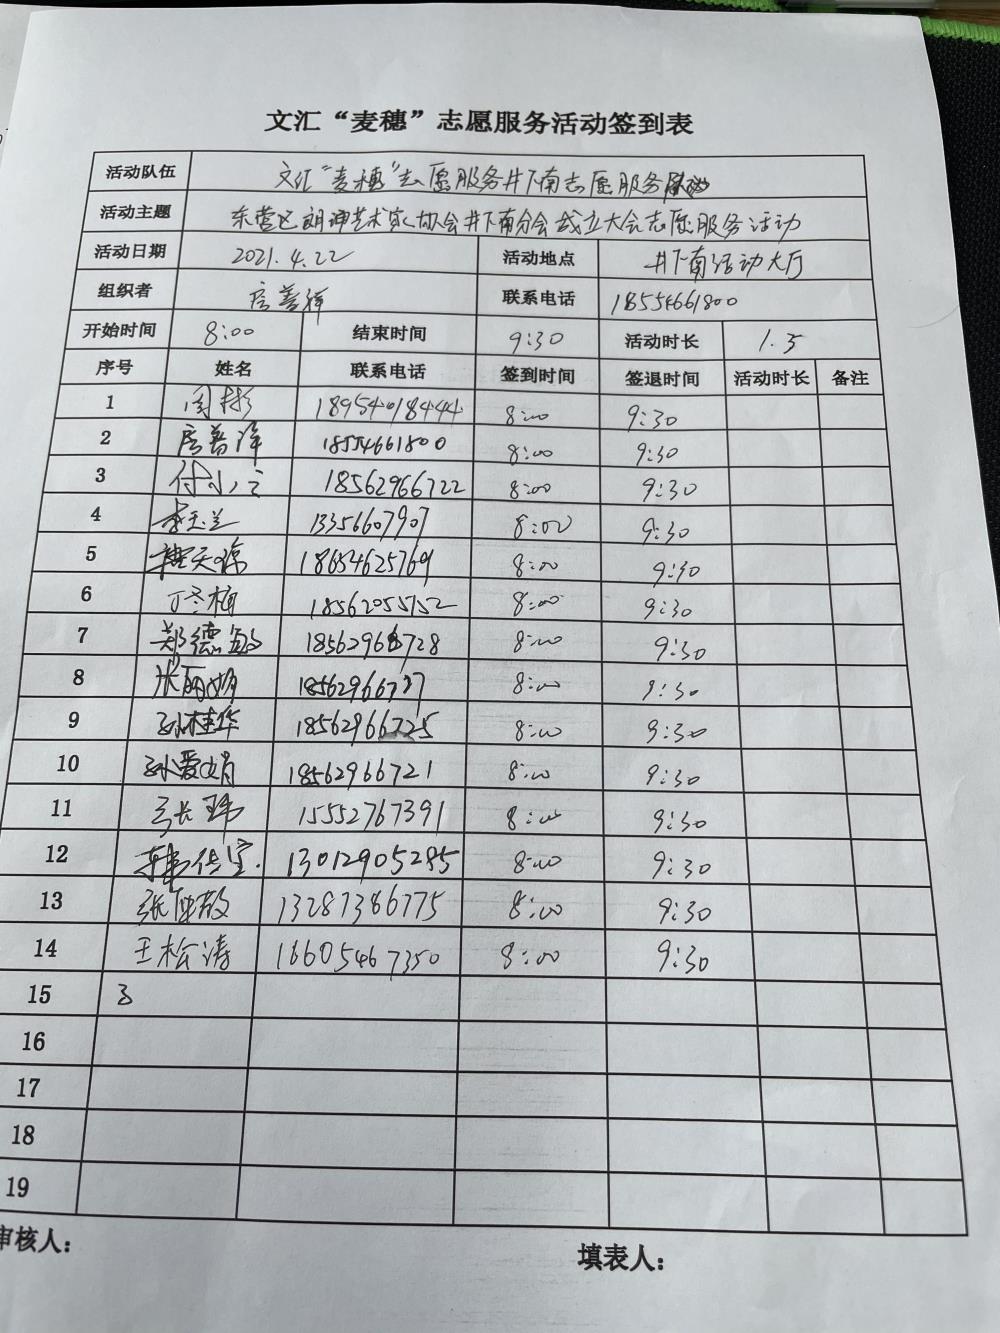 文汇“麦穗”志愿服务活动签到表
活动队伍 文汇“麦穗”志愿服务井下南志愿服务
活动主题 东营区朗诵艺术家协会井下南分会成立大会志愿服务活动
活动日期 2021.4.22 活动地点 井下南活动大厅
组织者 房善祥 联系电话 18554661800
开始时间 8:00 结束时间 9:30 活动时长 1.5
序号 姓名 联系电话 签到时间 签退时间 活动时长 备注
1 闫彬 18954018444 8:00 9:30
2 房善祥 18554661800 8:00 9:30
3 18562966722 8:00 9:30
4 李玉兰 13356607907 8:00 9:30
5 18654625769 8:00 9:30
6 丁冬梅 18562055152 8:00 9:30
7 郑德敏 18562966728 8:00 9:30
8 张丽娟 18562966727 8:00 9:30
9 孙桂华 18562966725 8:00 9:30
10 孙爱娟 18562966721 8:00 9:30
11 弓长玮 15552767391 8:00 9:30
12 韩传宝 13012905285 8:00 9:30
13 13287386775 8:00 9:30
14 王松涛 16605467350 8:00 9:30
15
16
17
18
19
审核人： 填表人：